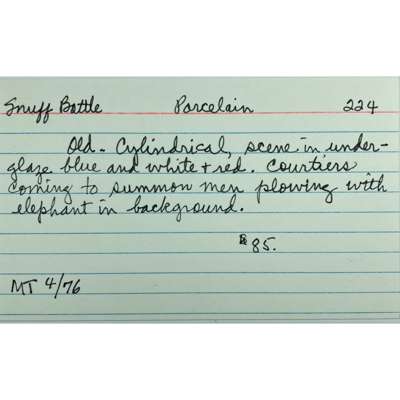 Snuff Bottle Porcelain 224
Old - Cylindrical, scene in under-
glaze blue and white + red. Courtiers
coming to summon men plowing with
elephant in background.
85.
MT 4/76